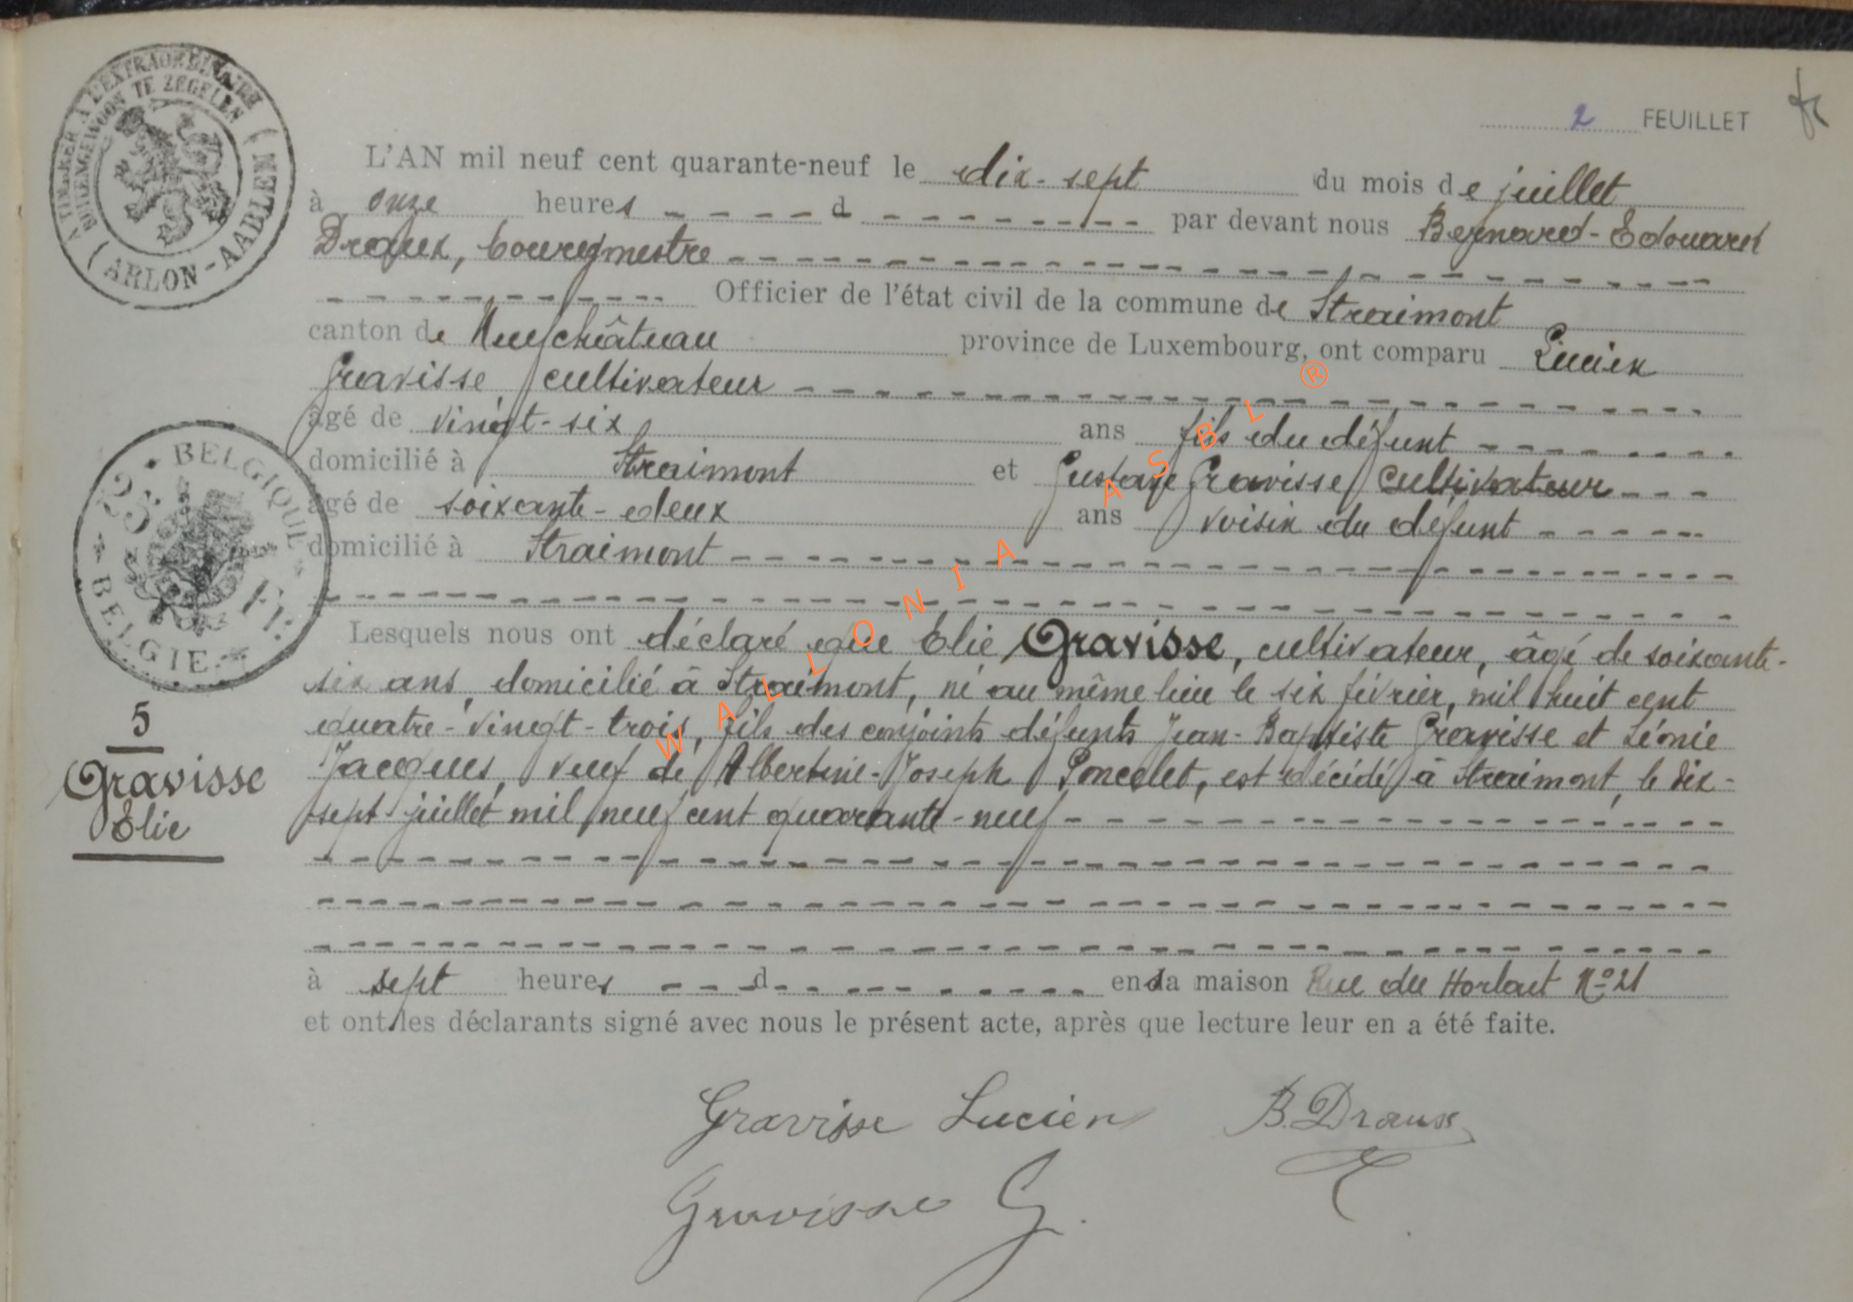 A TIMBRER À L'EXTRAORDINAIRE
BUITENGEWOON TE ZEGELEN
( ARLON-AABLEN )
2 FEUILLET
L'AN mil neuf cent quarante-neuf le dix-sept du mois de juillet
à onze heures d par devant nous Bernard-Edouard
Draux, bourgmestre
Officier de l'état civil de la commune de Straimont
canton de Neufchâteau province de Luxembourg, ont comparu Lucien
Gravisse, cultivateur
âgé de vingt-six ans fils du défunt
domicilié à Straimont et Gustave Gravisse, cultivateur
âgé de soixante-deux ans voisin du défunt
domicilié à Straimont
BELGIQUE
25 Fr.
BELGIE
Lesquels nous ont déclaré que Elie Gravisse, cultivateur, âgé de soixante-
six ans, domicilié à Straimont, né au même lieu le six février, mil huit cent
quatre-vingt-trois, fils des conjoints défunts Jean-Baptiste Gravisse et Léonie
Jacques, veuf de Albertine-Joseph Poncelet, est décédé à Straimont, le dix-
sept juillet mil neuf cent quarante-neuf
5
Gravisse
Elie
à sept heures d en sa maison Rue du Horlait N° 21
et ont les déclarants signé avec nous le présent acte, après que lecture leur en a été faite.
Gravisse Lucien B. Draux
Gravisse G.
WALLONIA ASBL ®